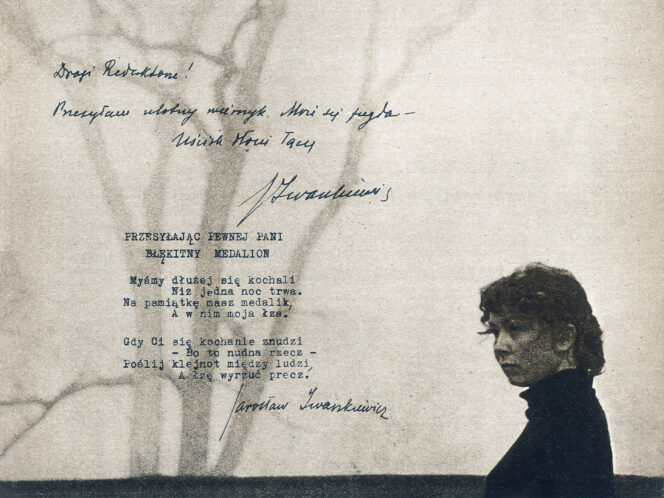 Drogi Redaktorze!
Przesyłam ulotny wierszyk. Może się przyda –
Uścisk dłoni łączę
JIwaszkiewicz
PRZESYŁAJĄC PEWNEJ PANI
BŁĘKITNY MEDALION
Myśmy dłużej się kochali
Niż jedna noc trwa.
Na pamiątkę masz medalik,
A w nim moja łza.
Gdy Ci się kochanie znudzi
- Bo to nudna rzecz -
Poślij klejnot między ludzi,
A łzę wyrzuć precz.
Jarosław Iwaszkiewicz